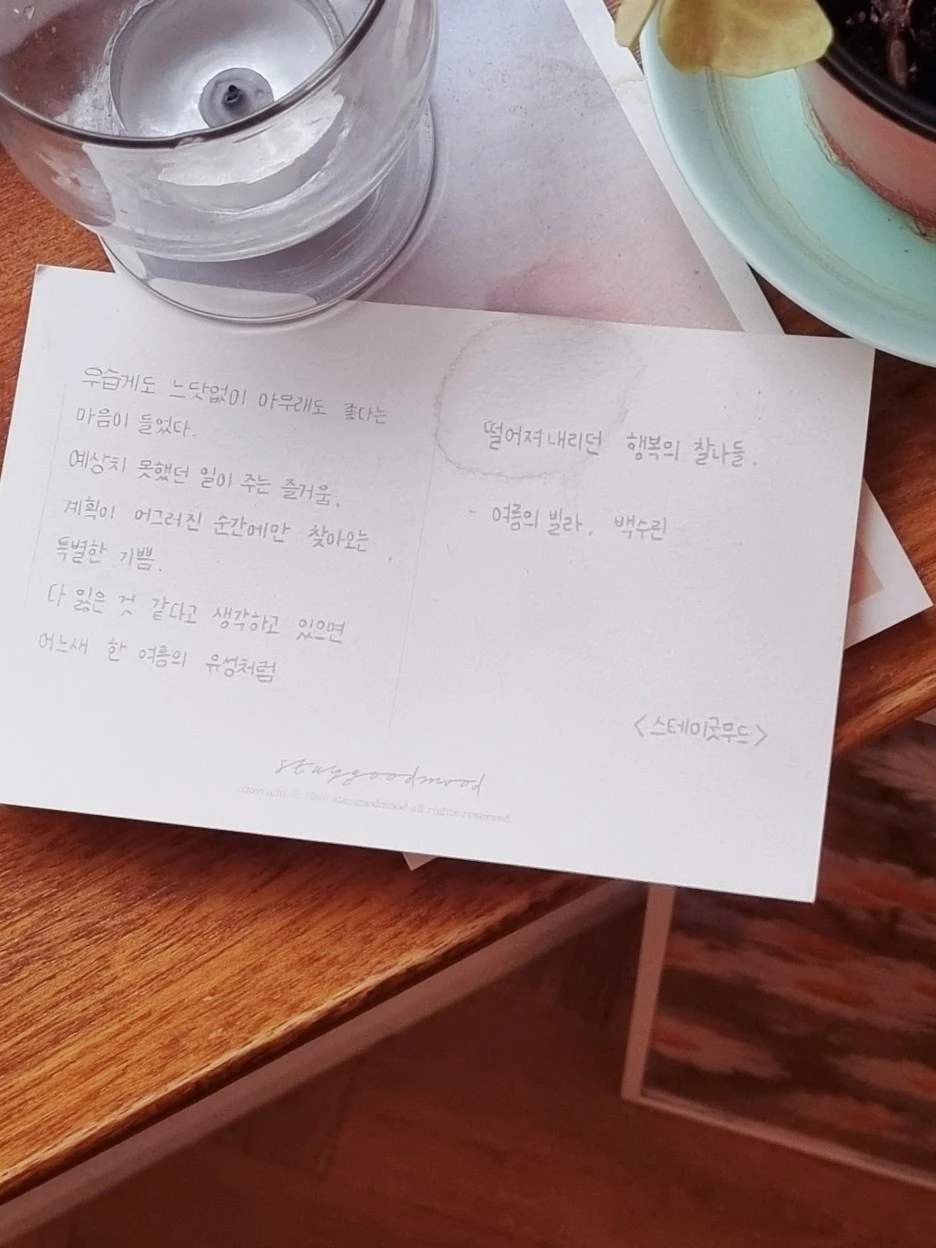 우습게도 느닷없이 아무래도 좋다는
마음이 들었다.
예상치 못했던 일이 주는 즐거움.
계획이 어그러진 순간에만 찾아오는
특별한 기쁨.
다 잃은 것 같다고 생각하고 있으면
어느새 한 여름의 유성처럼
떨어져내리던 행복의 찰나들.
- 여름의 빌라, 백수린
<스테이굿무드>
staygoodmood
copyright ⓒ 2019 staygoodmood all rights reserved.